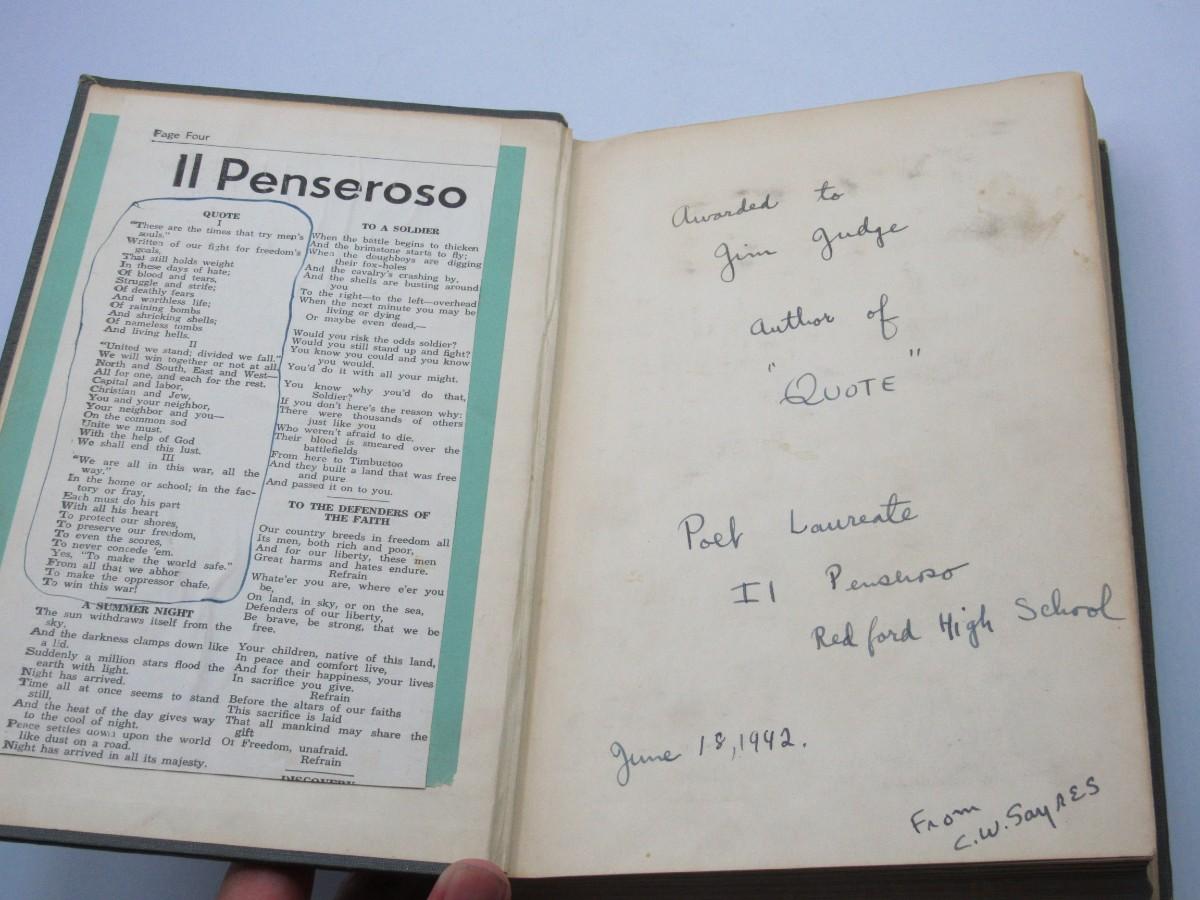 Page Four
Il Penseroso
QUOTE
I
"These are the times that try men's
souls."
Written of our fight for freedom's
goals,
That still holds weight
In these days of hate;
Of blood and tears,
Struggle and strife;
Of deathly fears
And worthless life;
Of raining bombs
And shrieking shells;
Of nameless tombs
And living hells.
II
"United we stand; divided we fall."
We will win together or not at all.
North and South, East and West—
All for one, and each for the rest.
Capital and labor,
Christian and Jew,
You and your neighbor,
Your neighbor and you—
On the common sod
Unite we must.
With the help of God
We shall end this lust.
III
"We are all in this war, all the
way."
In the home or school; in the fac-
tory or fray,
Each must do his part
With all his heart
To protect our shores,
To preserve our freedom,
To even the scores,
To never concede 'em.
Yes, "To make the world safe."
From all that we abhor
To make the oppressor chafe,
To win this war!
A SUMMER NIGHT
The sun withdraws itself from the
sky.
And the darkness clamps down like
a lid.
Suddenly a million stars flood the
earth with light.
Night has arrived.
Time all at once seems to stand
still,
And the heat of the day gives way
to the cool of night.
Peace settles down upon the world
like dust on a road.
Night has arrived in all its majesty.
TO A SOLDIER
When the battle begins to thicken
And the brimstone starts to fly;
When the doughboys are digging
their fox-holes
And the cavalry's crashing by,
And the shells are busting around
you
To the right—to the left—overhead
When the next minute you may be
living or dying
Or maybe even dead,—
Would you risk the odds soldier?
Would you still stand up and fight?
You know you could and you know
you would.
You'd do it with all your might.
You know why you'd do that,
Soldier?
If you don't here's the reason why:
There were thousands of others
just like you
Who weren't afraid to die.
Their blood is smeared over the
battlefields
From here to Timbuctoo
And they built a land that was free
and pure
And passed it on to you.
TO THE DEFENDERS OF
THE FAITH
Our country breeds in freedom all
Its men, both rich and poor,
And for our liberty, these men
Great harms and hates endure.
Refrain
Whate'er you are, where e'er you
be,
On land, in sky, or on the sea,
Defenders of our liberty,
Be brave, be strong, that we be
free.
Your children, native of this land,
In peace and comfort live,
And for their happiness, your lives
In sacrifice you give.
Refrain
Before the altars of our faiths
This sacrifice is laid
That all mankind may share the
gift
Of Freedom, unafraid.
Refrain
DISCOVERY
Awarded to
Jim Judge
Author of
"QUOTE"
Poet Laureate
Il Penseroso
Redford High School
June 18, 1942.
From
C.W. Sayres